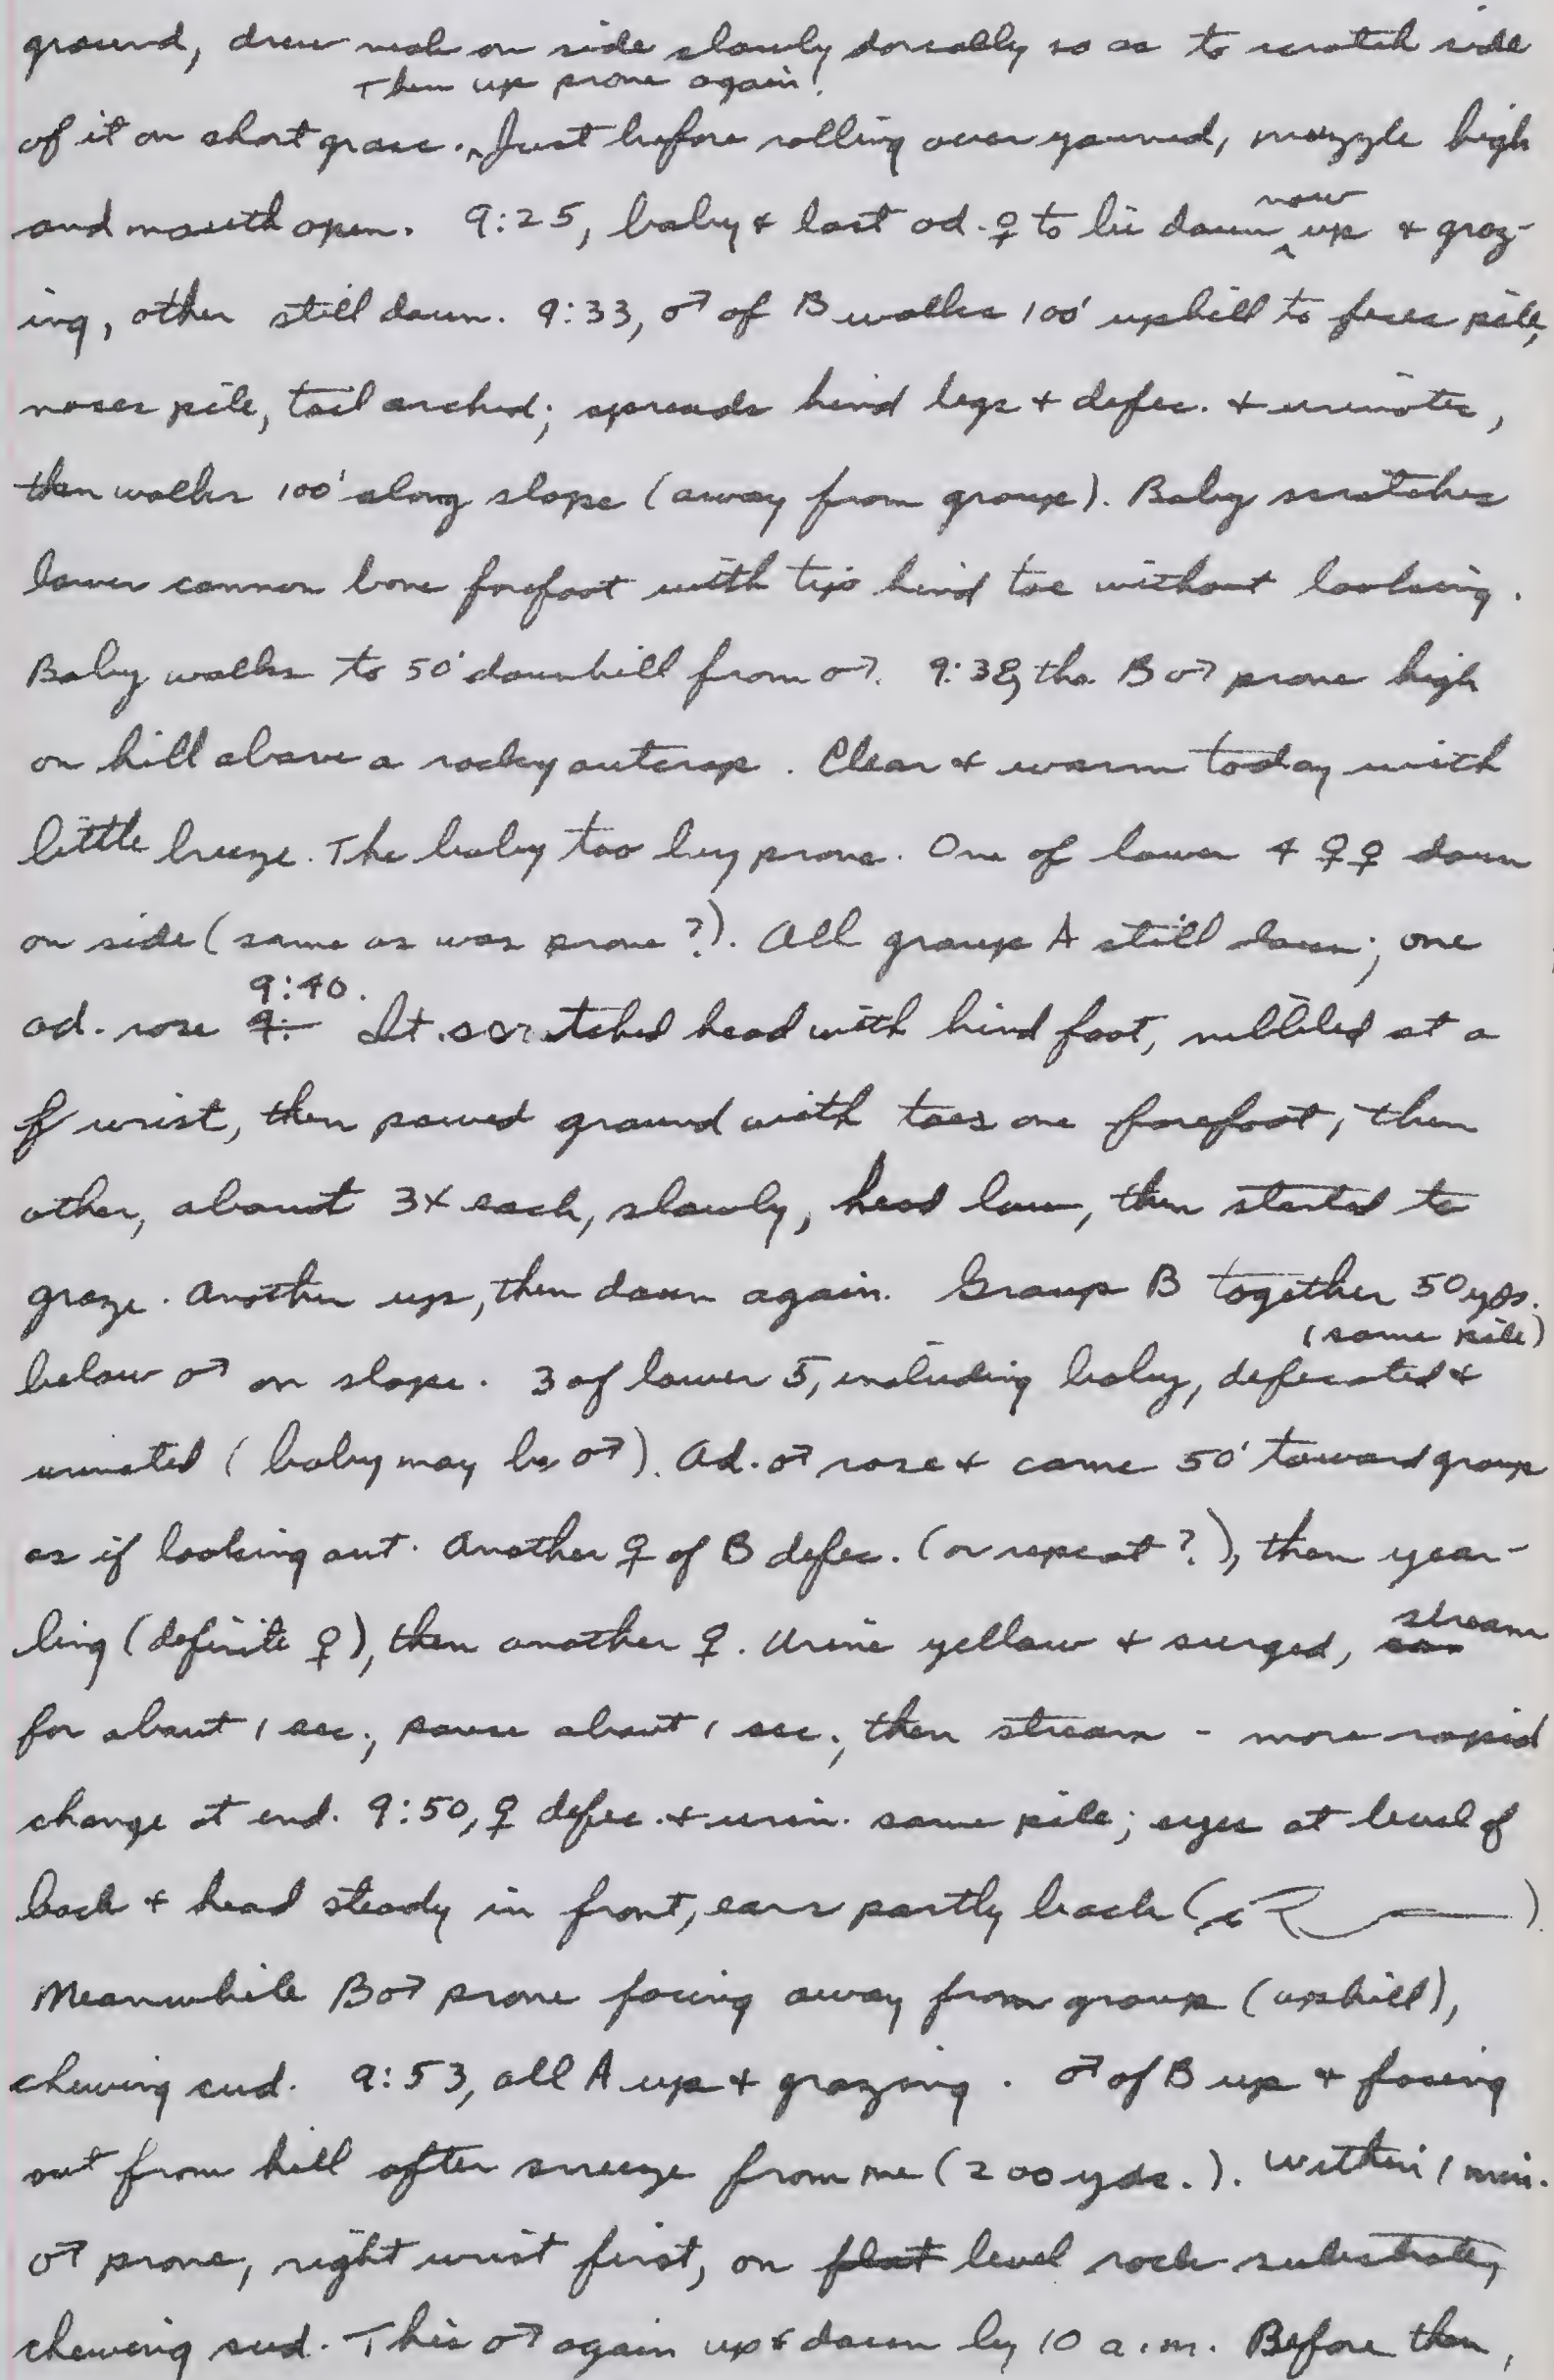 ground, drew neck on side slowly dorsally so as to scratch side
Then up prone again.
of it on short grass. ^ Just before rolling over yawned, muzzle high
now
and mouth open. 9:25, baby & last ad. ♀ to lie down ^ up & graz-
ing, other still down. 9:33, ♂ of B walks 100' uphill to feces pile,
noses pile, tail arched; spreads hind legs & defec. & urinates,
then walks 100' along slope (away from group). Baby scratches
lower cannon bone forefoot with tip hind toe without looking.
Baby walks to 50' downhill from ♂. 9:38, the B ♂ prone high
on hill above a rocky outcrop. Clear & warm today with
little breeze. The baby too lay prone. One of lower 4 ♀♀ down
on side (same as was prone?). All group A still down; one
9:40.
ad. rose 9: It scratched head with hind foot, nibbled at a
f wrist, then pawed ground with toes one forefoot, then
other, about 3X each, slowly, head low, then started to
graze. Another up, then down again. Group B together 50 yds.
(same pile)
below ♂ on slope. 3 of lower 5, including baby, defecated &
urinated (baby may be ♂). Ad. ♂ rose & came 50' toward group
as if looking out. Another ♀ of B defec. (or repeat?), then year-
stream
ling (definite ♀), then another ♀. Urine yellow & surged,
for about 1 sec., pause about 1 sec., then stream - more rapid
change at end. 9:50, ♀ defec. & urin. same pile; eyes at level of
back & head steady in front, ears partly back ( ).
Meanwhile B ♂ prone facing away from group (uphill),
chewing cud. 9:53, all A up & grazing. ♂ of B up & facing
out from hill after sneeze from me (200 yds.). Within 1 min.
♂ prone, right wrist first, on flat level rock substrate,
chewing cud. This ♂ again up & down by 10 a.m. Before then,